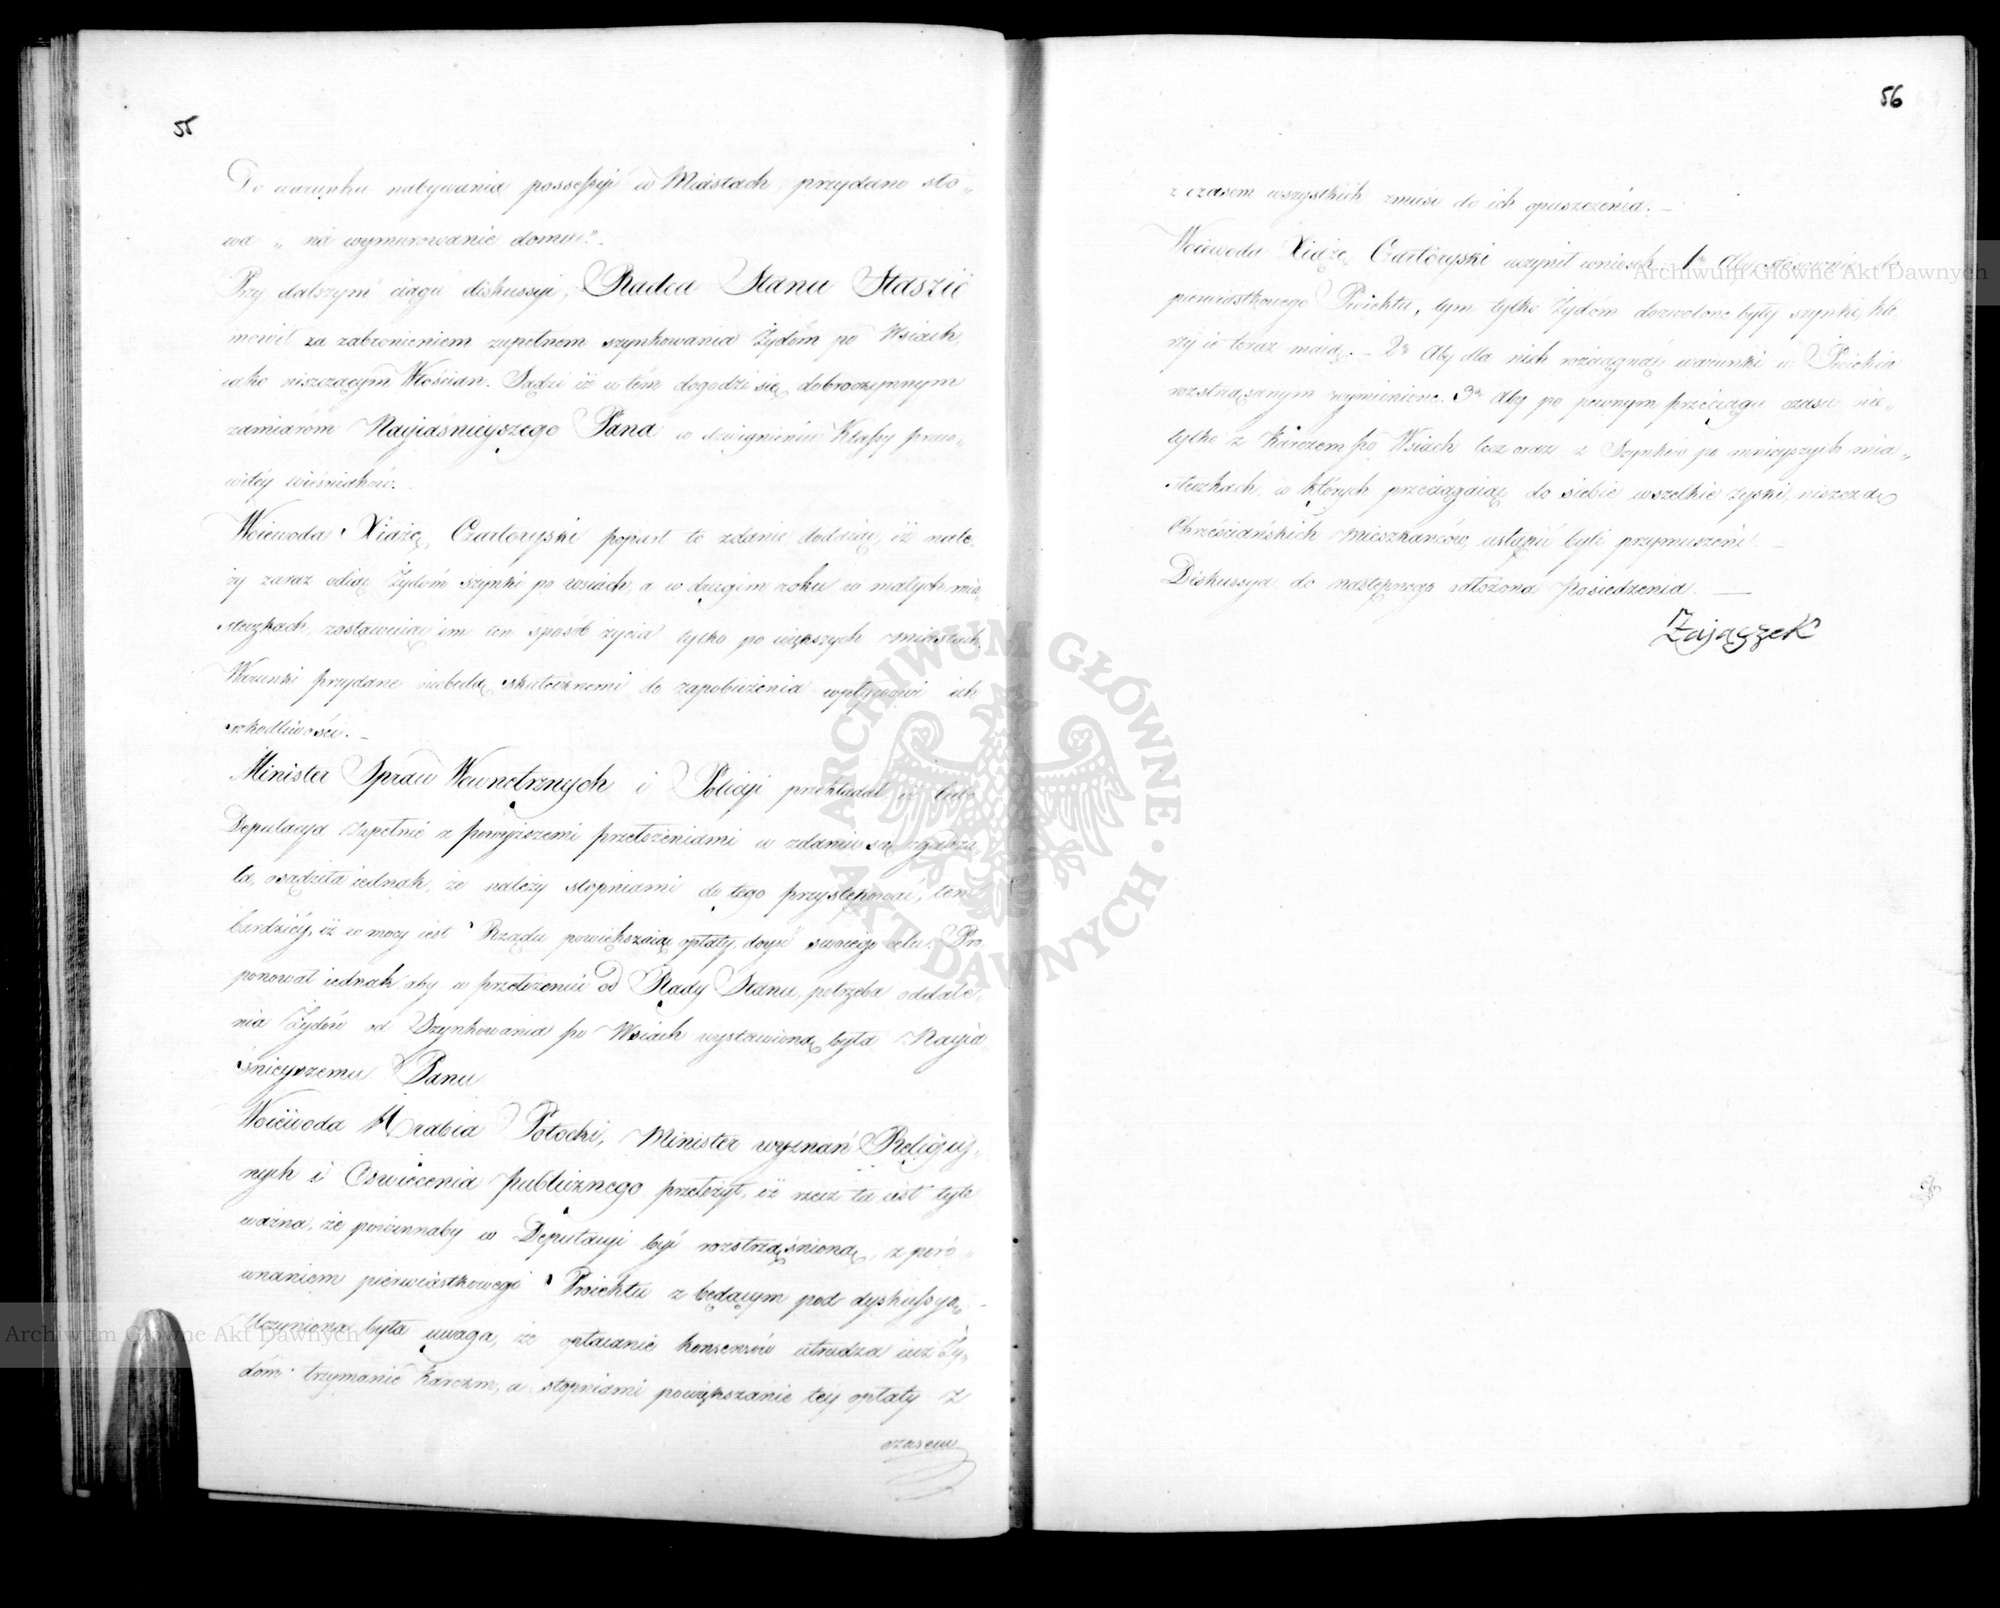 55
Do warunku nabywania possessyi w Miastach, przydano sło„
wa „na wymurowanie domu".
Przy dalszym ciągu diskussyi, Radca Stanu Staszic
mówił za zabronieniem zupełnem szynkowania Żydóm po Wsiach,
iako niszczącym Włościan. Sądzi iż w tém dogodzi się dobroczynnym
zamiaróm Nayiaśnieyszego Pana w dzwignieniu Klassy praco„
witéy wieśniaków.
Woiewoda Xiążę Czartoryski poparł to zdanie dodaiąc, iż nale„
ży zaraz odiąć Żydóm szynki po wsiach, a w drugim roku w małych mia„
steczkach, zostawuiąc im ten sposób życia tylko po większych miastach.
Warunki przydane niebędą skutecznemi do zapobieżenia wpływowi ich
szkodliwości. —
Minister Spraw Wewnętrznych i Policyi przekładał iż lubo
Deputacya zupełnie z powyższemi przełożeniami w zdaniu się zgadza„
ła, osądziła iednak, że należy stopniami do tego przystępować, tem
bardziéy, iż w mocy iest Rządu powiększaiąc opłaty, doyść swoiego celu. Pro„
ponował iednak aby w przełożeniu od Rady Stanu, potrzeba oddale„
nia Żydów od Szynkowania po Wsiach wystawioną była Nayia„
śnieyszemu Panu
Woiewoda Hrabia Potocki, Minister wyznań Religiy„
nych i Oswiecenia publicznego przełożył, iż rzecz ta iest tyle
ważna, że powinnaby w Deputacyi być roztrząśnioną, z poró„
wnaniem pierwiastkowego Proiektu z będącym pod dyskussyą. —
Uczyniona była uwaga, że opłacanie konsensów utrudza iuż Ży„
dóm trzymanie Karczm, a stopniami powiększanie téy opłaty z
czasem
56
z czasem wszystkich zmusi do ich opuszczenia. —
Woiewoda Xiążę Czartoryski uczynił wniosek 1o Aby stosownie do
pierwiastkowego Proiektu, tym tylko Żydóm dozwolone były szynki, któ„
rzy ie teraz maią. — 2o Aby dla nich rozciągnąć warunki w Proiekcie
roztrząsanym wymienione. 3o Aby po pewnym przeciągu czasu nie„
tylko z Karczem po Wsiach lecz oraz z Szynków po mnieyszych mia„
steczkach, w których przeciągaiąc do siebie wszelkie zyski, niszczą
Chrześciańskich mieszkańców, ustąpić byli przymuszeni. —
Diskussya do następnego odłożona posiedzenia. —
Zajączek
ARCHIWUM GŁÓWNE AKT DAWNYCH
Archiwum Główne Akt Dawnych
Archiwum Główne Akt Dawnych